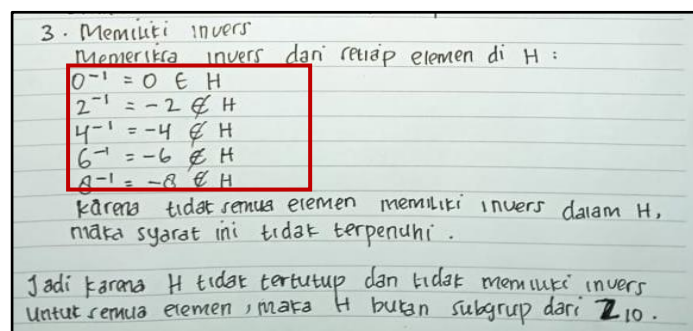 3. Memiliki invers
Memeriksa invers dari setiap elemen di H :
0⁻¹ = 0 ∈ H
2⁻¹ = -2 ∉ H
4⁻¹ = -4 ∉ H
6⁻¹ = -6 ∉ H
8⁻¹ = -8 ∉ H
Karena tidak semua elemen memiliki invers dalam H,
maka syarat ini tidak terpenuhi.
Jadi karena H tidak tertutup dan tidak memiliki invers
Untuk semua elemen, maka H bukan subgrup dari Z₁₀.